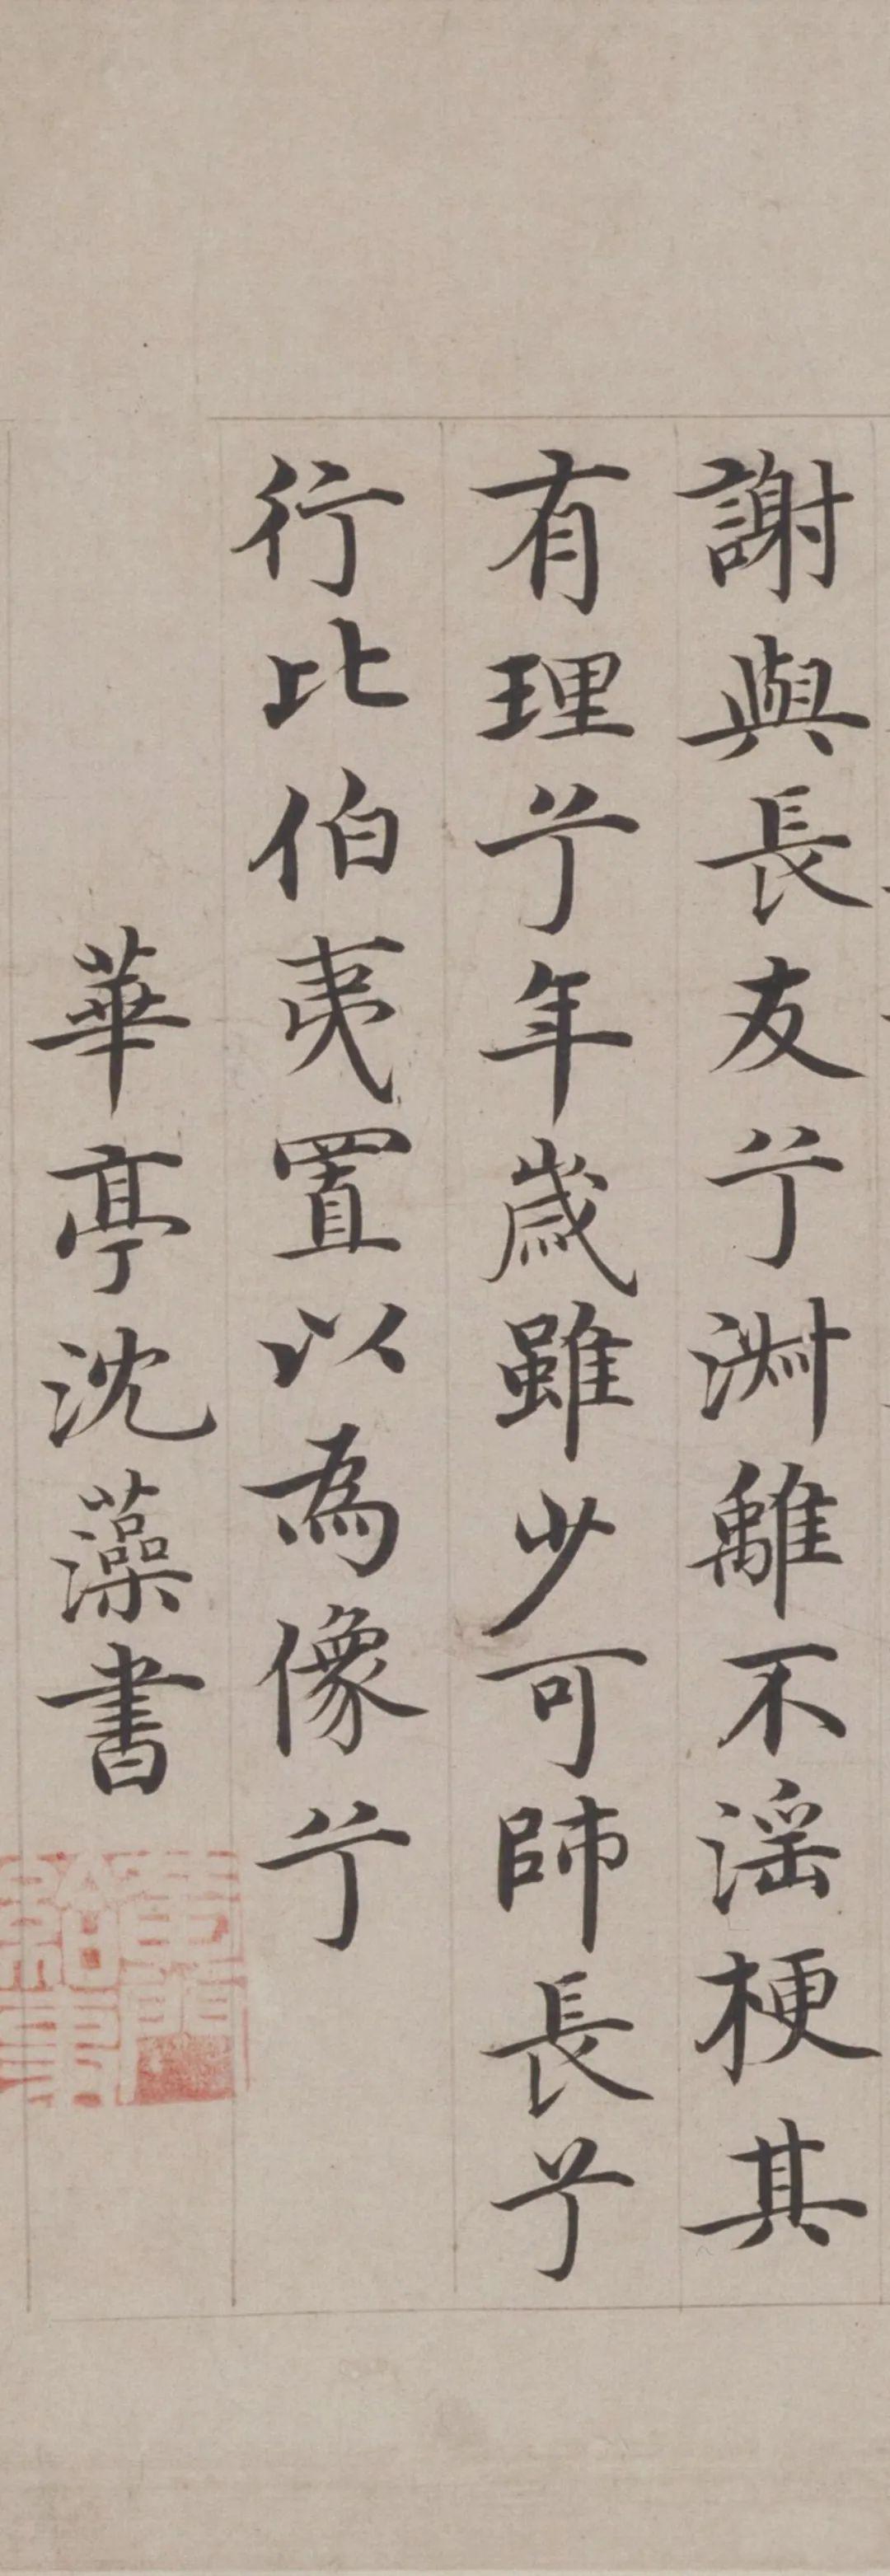 謝與長友兮淑離不淫梗其
有理兮年歲雖少可師長兮
行比伯夷置以為像兮
華亭沈藻書